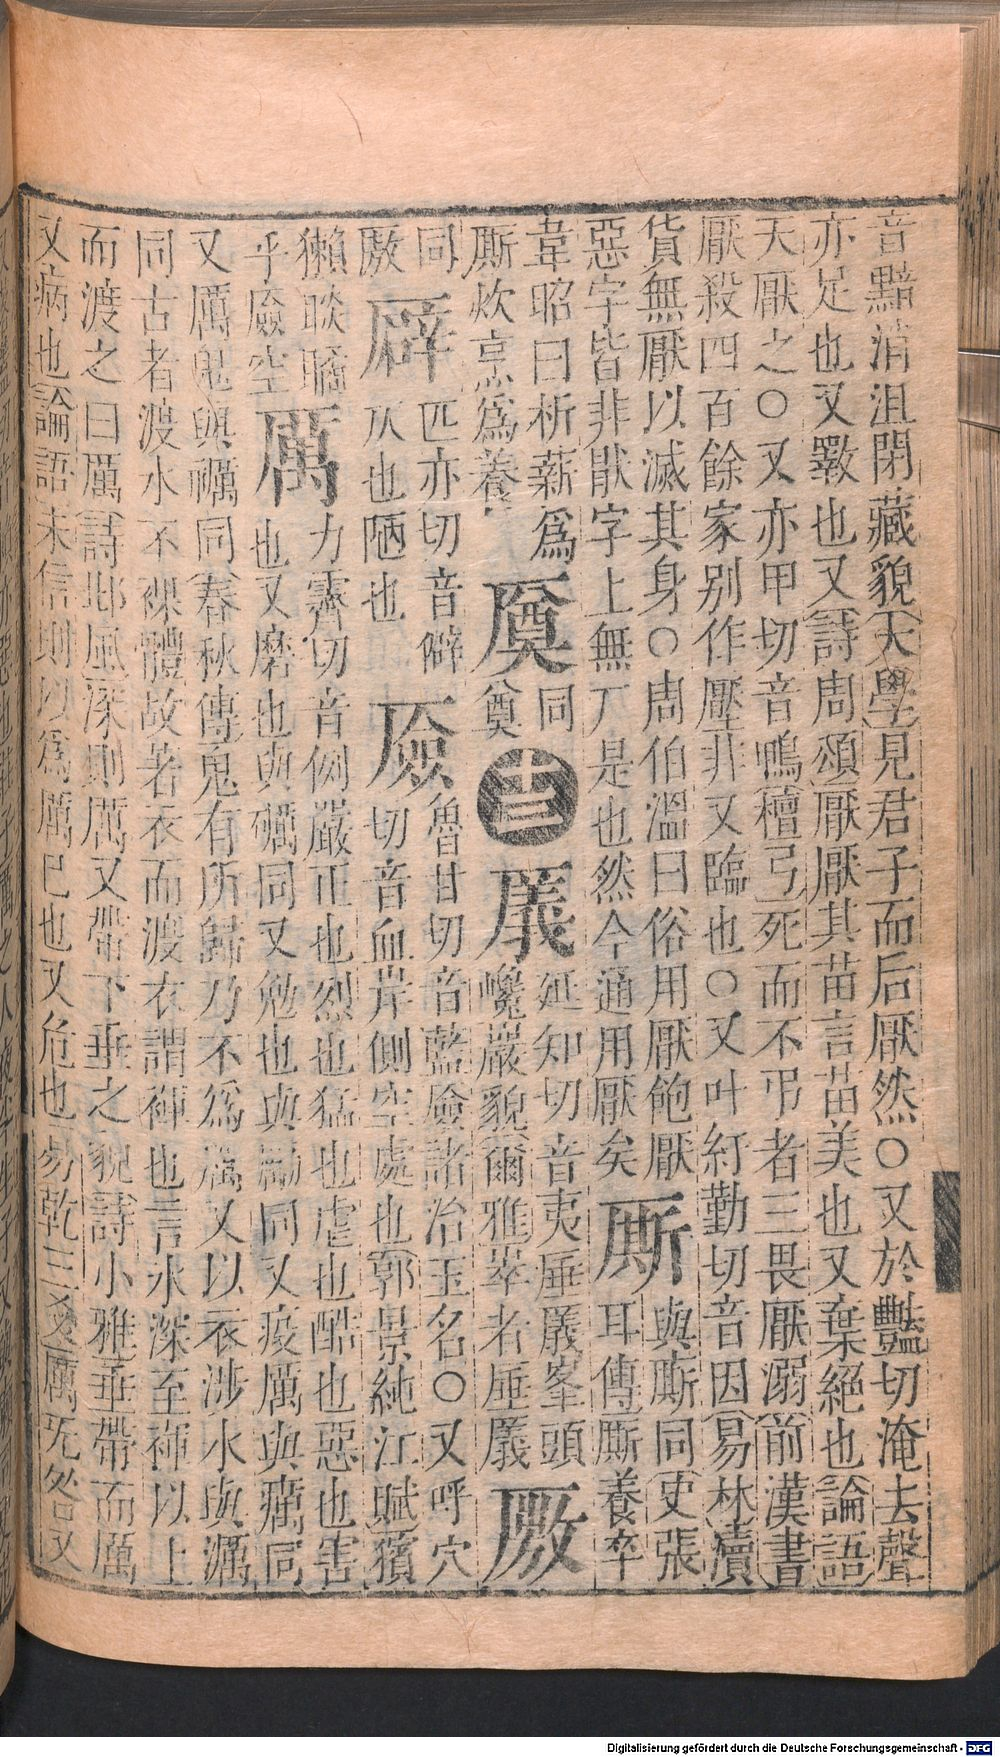 音黯消沮閉藏貌大學見君子而后厭然〇又於豔切淹去聲
亦足也又斁也又詩周頌厭厭其苗言苗美也又棄絕也論語
天厭之〇又亦甲切音鴨檀弓死而不弔者三畏厭溺前漢書
厭殺四百餘家别作壓非又臨也〇又叶紅勤切音因易林瀆
貨無厭以滅其身〇周伯溫曰俗用厭飽厭
惡字皆非猒字上無厂是也然今通用厭矣
厮
與廝同史張
耳傳厮養卒
韋昭曰析薪爲
厮炊烹爲養
同
奠
十三
延知切音夷厜㕒峯頭
巉巖貌爾雅崒者厜㕒
同
厫
匹亦切音僻
仄也陋也
魯甘切音藍厱諸治玉名〇又呼穴
切音血岸側空處也郭景純江賦獱
獺睒瞲
乎厱空
厲
力霽切音例嚴正也烈也猛也虐也酷也惡也害
也又磨也與礪同又勉也與勵同又疫厲與癘同
又厲鬼與禲同春秋傳鬼有所歸乃不爲厲又以衣涉水與濿
同古者渡水不裸體故著衣而渡衣謂褌也言水深至褌以上
而渡之曰厲詩邶風深則厲又帶下垂之貌詩小雅垂帶而厲
又病也論語未信則以爲厲已也又危也易乾三爻厲无咎又
Digitalisierung gefördert durch die Deutsche Forschungsgemeinschaft - DFG